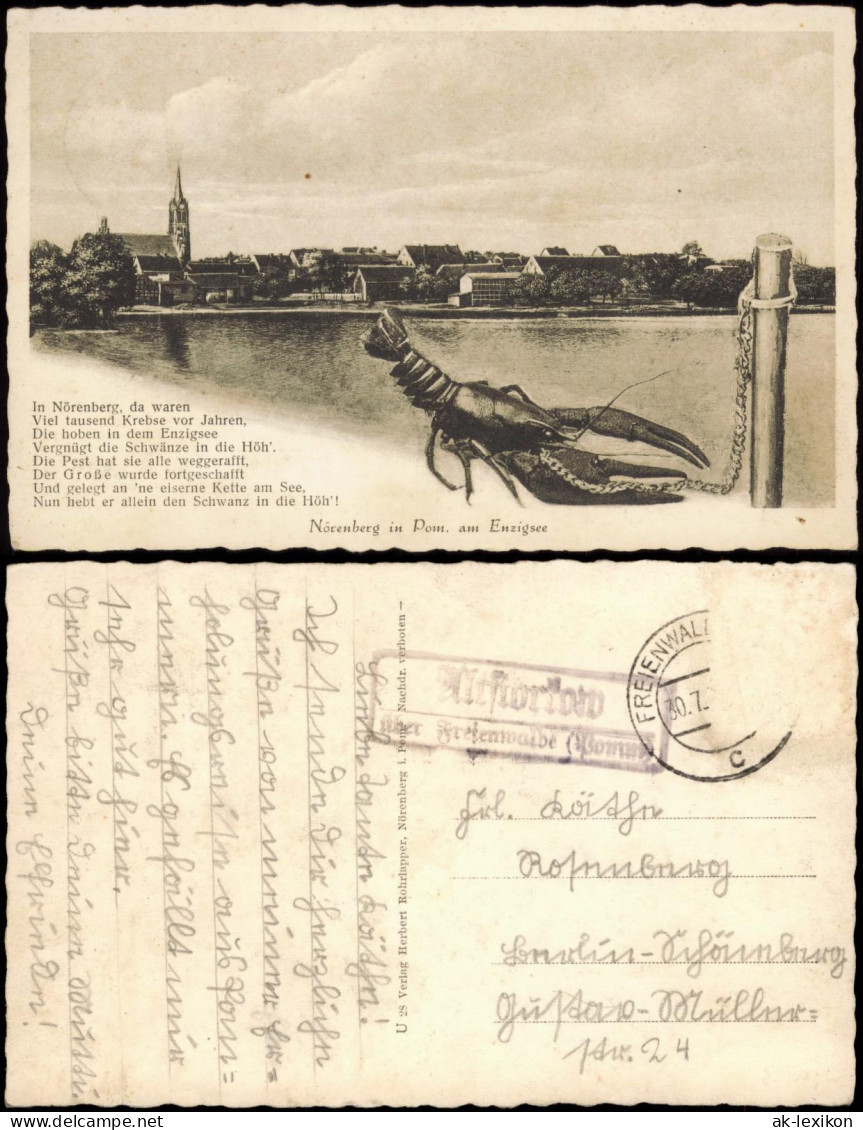 In Nörenberg, da waren
Viel tausend Krebse vor Jahren,
Die hoben in dem Enzigsee
Vergnügt die Schwänze in die Höh'.
Die Pest hat sie alle weggerafft,
Der Große wurde fortgeschafft
Und gelegt an 'ne eiserne Kette am See,
Nun hebt er allein den Schwanz in die Höh'!
Nörenberg in Pom. am Enzigsee
Liebe Tante Käthe!
Ich sende Dir herzliche
Grüße von meiner Er=
holungsreise aus Pom=
mern. Es gefällt mir
sehr gut hier.
Grüße bitte Deine Mutti.
Deine Elfriede!
U 28 Verlag Herbert Rohrlapper, Nörenberg i. Pom. Nachdr. verboten –
über Freienwalde (Pomm)
FREIENWAL
30.7.
c
Frl. Käthe
Rosenberg
Berlin-Schöneberg
Gustav-Müller=
str. 24
ak-lexikon